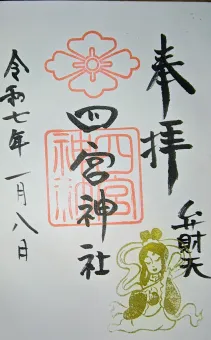 奉拝
四宮神社
四宮
神社
弁財天
令和七年一月八日